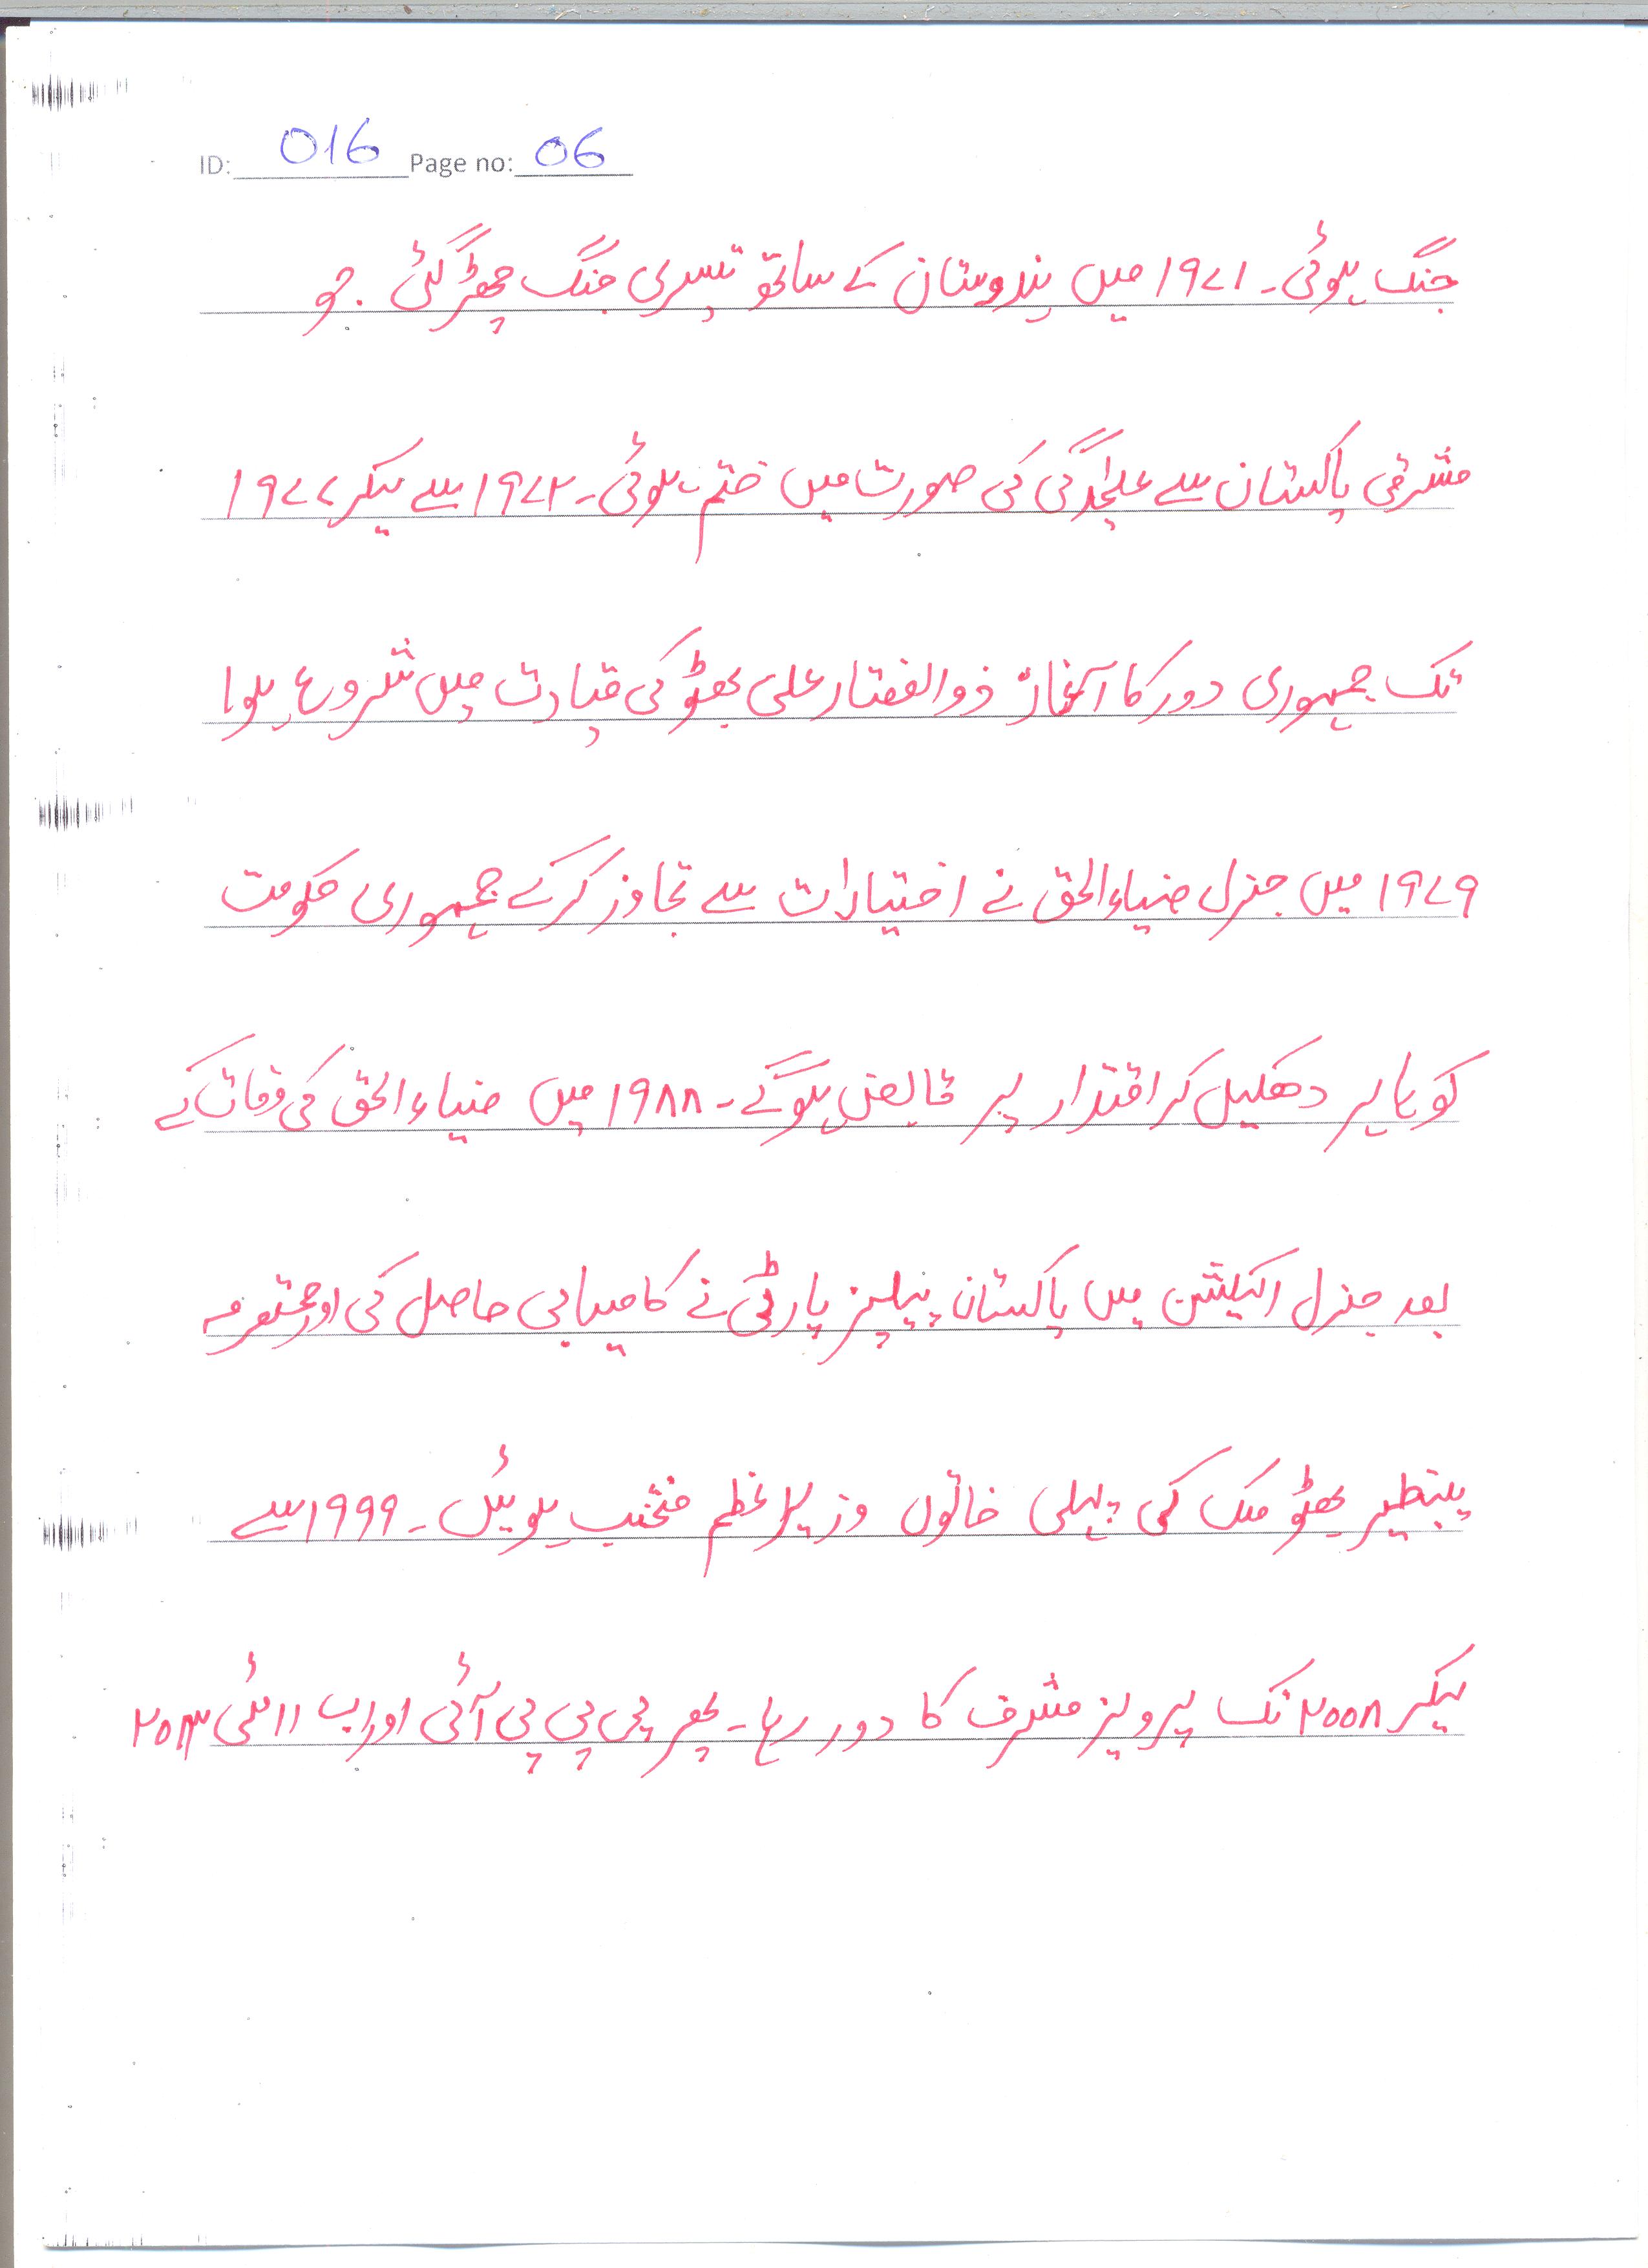 ID: 016 Page no: 06
جنگ ہوئی۔ ۱۹۷۱ میں ہندوستان کے ساتھ تیسری جنگ چھڑ گئی۔ جو
مشرقی پاکستان سے علیحدگی کی صورت میں ختم ہوئی۔ ۱۹۷۲ سے لیکر ۱۹۷۷
تک جمہوری دور کا آغاز ذوالفقار علی بھٹو کی قیادت میں شروع ہوا
۱۹۷۹ میں جنرل ضیاءالحق نے اختیارات سے تجاوز کر کے جمہوری حکومت
کو باہر دھکیل کر اقتدار پر قابض ہوگئے۔ ۱۹۸۸ میں ضیاءالحق کی وفات کے
بعد جنرل الیکشن میں پاکستان پیپلز پارٹی نے کامیابی حاصل کی اور محترمہ
بینظیر بھٹو ملک کی پہلی خاتون وزیراعظم منتخب ہوئیں۔ ۱۹۹۹ سے
لیکر ۲۰۰۸ تک پرویز مشرف کا دور رہا۔ پھر پی پی پی آئی اور اب ۱۱ مئی ۲۰۱۳